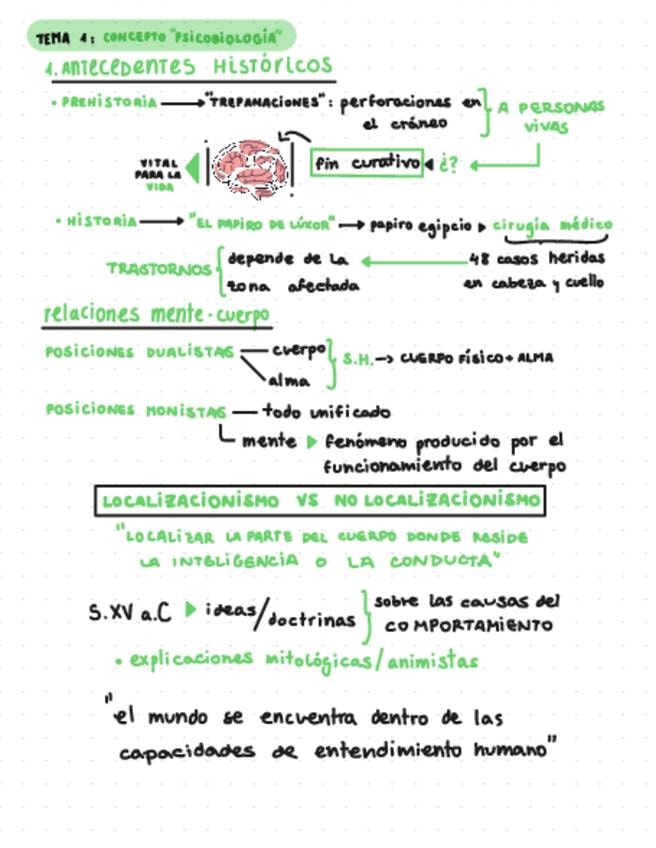 TEMA 1: CONCEPTO "PSICOBIOLOGÍA"
1. ANTECEDENTES HISTÓRICOS
• PREHISTORIA → "TREPANACIONES": perforaciones en el cráneo } A PERSONAS VIVAS
VITAL PARA LA VIDA
fin curativo ◀ ¿?
• HISTORIA → "EL PAPIRO DE LÚXOR" → papiro egipcio ▶ cirugía médico
TRASTORNOS { depende de la zona afectada ← 48 casos heridas en cabeza y cuello
relaciones mente-cuerpo
POSICIONES DUALISTAS — cuerpo
alma } S.H. → CUERPO FÍSICO + ALMA
POSICIONES MONISTAS — todo unificado
mente ▶ fenómeno producido por el
funcionamiento del cuerpo
LOCALIZACIONISMO VS NO LOCALIZACIONISMO
"LOCALIZAR LA PARTE DEL CUERPO DONDE RESIDE
LA INTELIGENCIA O LA CONDUCTA"
S.XV a.C ▶ ideas/doctrinas } sobre las causas del COMPORTAMIENTO
• explicaciones mitológicas/animistas
"el mundo se encuentra dentro de las
capacidades de entendimiento humano"